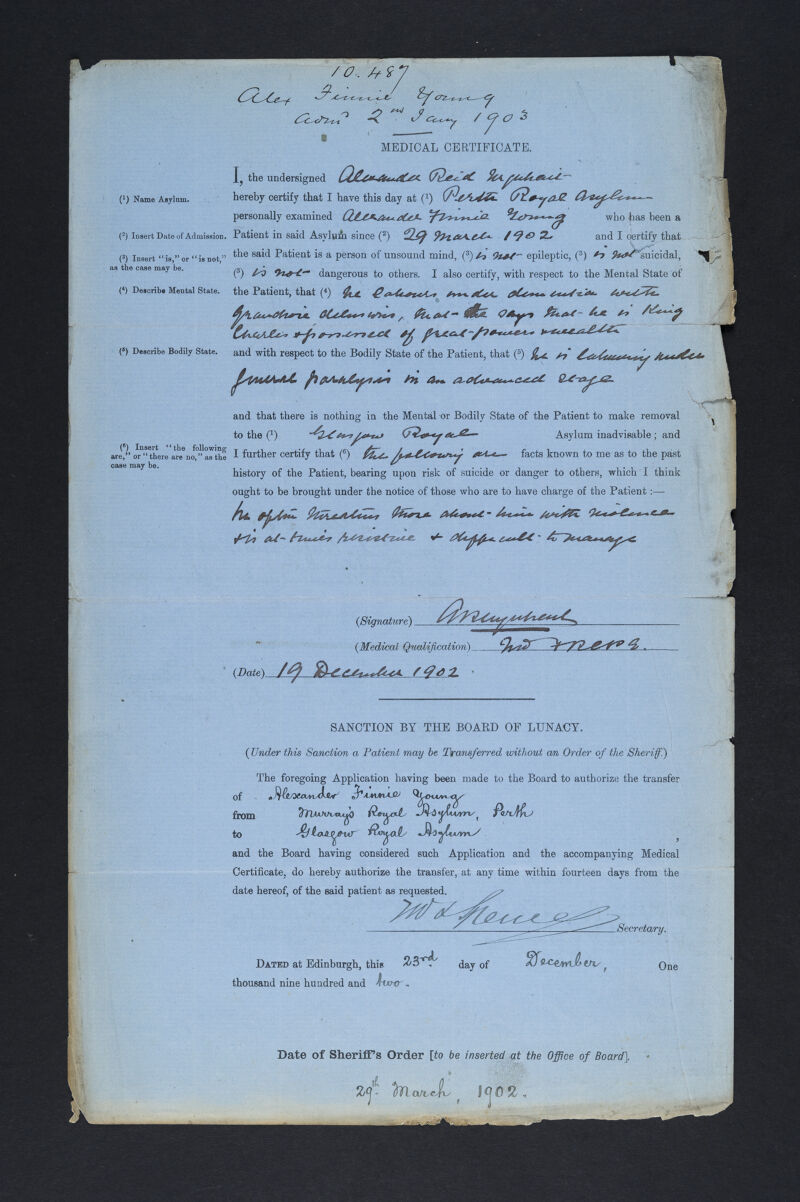 10.487
Alex Finnie Young
Adm^d 2^nd Jany 1903
MEDICAL CERTIFICATE.
I, the undersigned Alexander Reid Urquhart
(¹) Name Asylum. hereby certify that I have this day at (¹) Perth Royal Asylum
personally examined Alexander Finnie Young who has been a
(²) Insert Date of Admission. Patient in said Asylum since (²) 29 March 1902 and I certify that
(³) Insert "is," or "is not," as the case may be. the said Patient is a person of unsound mind, (³) is not epileptic, (³) is not suicidal,
(³) is not dangerous to others. I also certify, with respect to the Mental State of
(⁴) Describe Mental State. the Patient, that (⁴) he labours under dementia with
grandiose delusions, that he says that he is King
Charles & possessed of great powers & wealth
(⁵) Describe Bodily State. and with respect to the Bodily State of the Patient, that (⁵) he is labouring under
general paralysis in an advanced stage
and that there is nothing in the Mental or Bodily State of the Patient to make removal
to the (¹) Glasgow Royal Asylum inadvisable; and
(⁶) Insert "the following are," or "there are no," as the case may be. I further certify that (⁶) the following are facts known to me as to the past
history of the Patient, bearing upon risk of suicide or danger to others, which I think
ought to be brought under the notice of those who are to have charge of the Patient:—
he often threatens those about him with violence
& is at times resistive & difficult to manage
(Signature) AR Urquhart
(Medical Qualification) MD FRCPE.
(Date) 19 December 1902
SANCTION BY THE BOARD OF LUNACY.
(Under this Sanction a Patient may be Transferred without an Order of the Sheriff.)
The foregoing Application having been made to the Board to authorize the transfer
of Alexander Finnie Young
from Murray's Royal Asylum, Perth
to Glasgow Royal Asylum,
and the Board having considered such Application and the accompanying Medical
Certificate, do hereby authorize the transfer, at any time within fourteen days from the
date hereof, of the said patient as requested.
Spence Secretary.
DATED at Edinburgh, this 23rd. day of December, One
thousand nine hundred and two.
Date of Sheriff's Order [to be inserted at the Office of Board].
29th March, 1902.